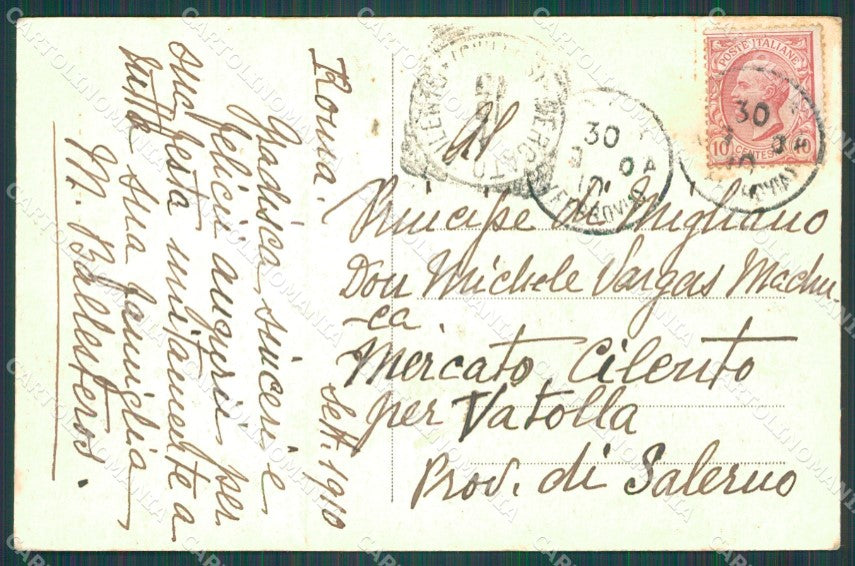 Roma. Sett. 1910
Gradisca, sinceri e
felici auguri per
sua festa unitamente a
tutta sua famiglia
M. Ballesteros.
Al
Principe di Migliano
Don Michele Vargas Machu-
-ca
Mercato Cilento
per Vatolla
Prov. di Salerno
POSTE ITALIANE
10 CENTESIMI 10
30
10
30
10
CARTOLINOMANIA